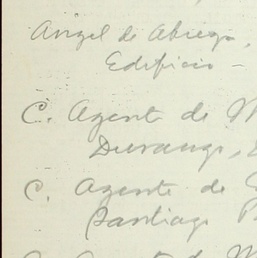 Angel de Abrego,
Edificio -
C. Agente de M
Durango,
C. Agente de
Santiago P